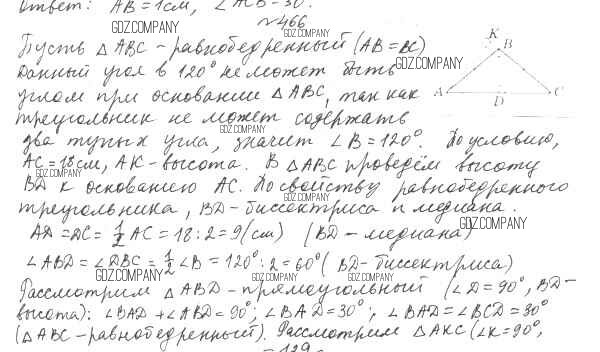 Ответ: AB = 1см, ∠ACB - 30°.
GDZ.COMPANY
№466
Пусть △ABC - равнобедренный (AB = BC)
GDZ.COMPANY
Данный угол в 120° не может быть
углом при основании △ABC, так как
GDZ.COMPANY
треугольник не может содержать
GDZ.COMPANY
два тупых угла, значит ∠B = 120°. По условию,
AC = 18см, AK - высота. В △ABC проведём высоту
GDZ.COMPANY
BD к основанию AC. По свойству равнобедренного
GDZ.COMPANY
треугольника, BD - биссектриса и медиана.
GDZ.COMPANY
AD = DC = 1/2 AC = 18 : 2 = 9 (см) (BD - медиана)
∠ABD = ∠DBC = 1/2 ∠B = 120° : 2 = 60° (BD - биссектриса)
GDZ.COMPANY GDZ.COMPANY GDZ.COMPANY
Рассмотрим △ABD - прямоугольный (∠D = 90°, BD -
высота): ∠BAD + ∠ABD = 90°; ∠BAD = 30°; ∠BAD = ∠BCD = 30°
(△ABC - равнобедренный). Рассмотрим △AKC (∠K = 90°,
K
B
A
D
C